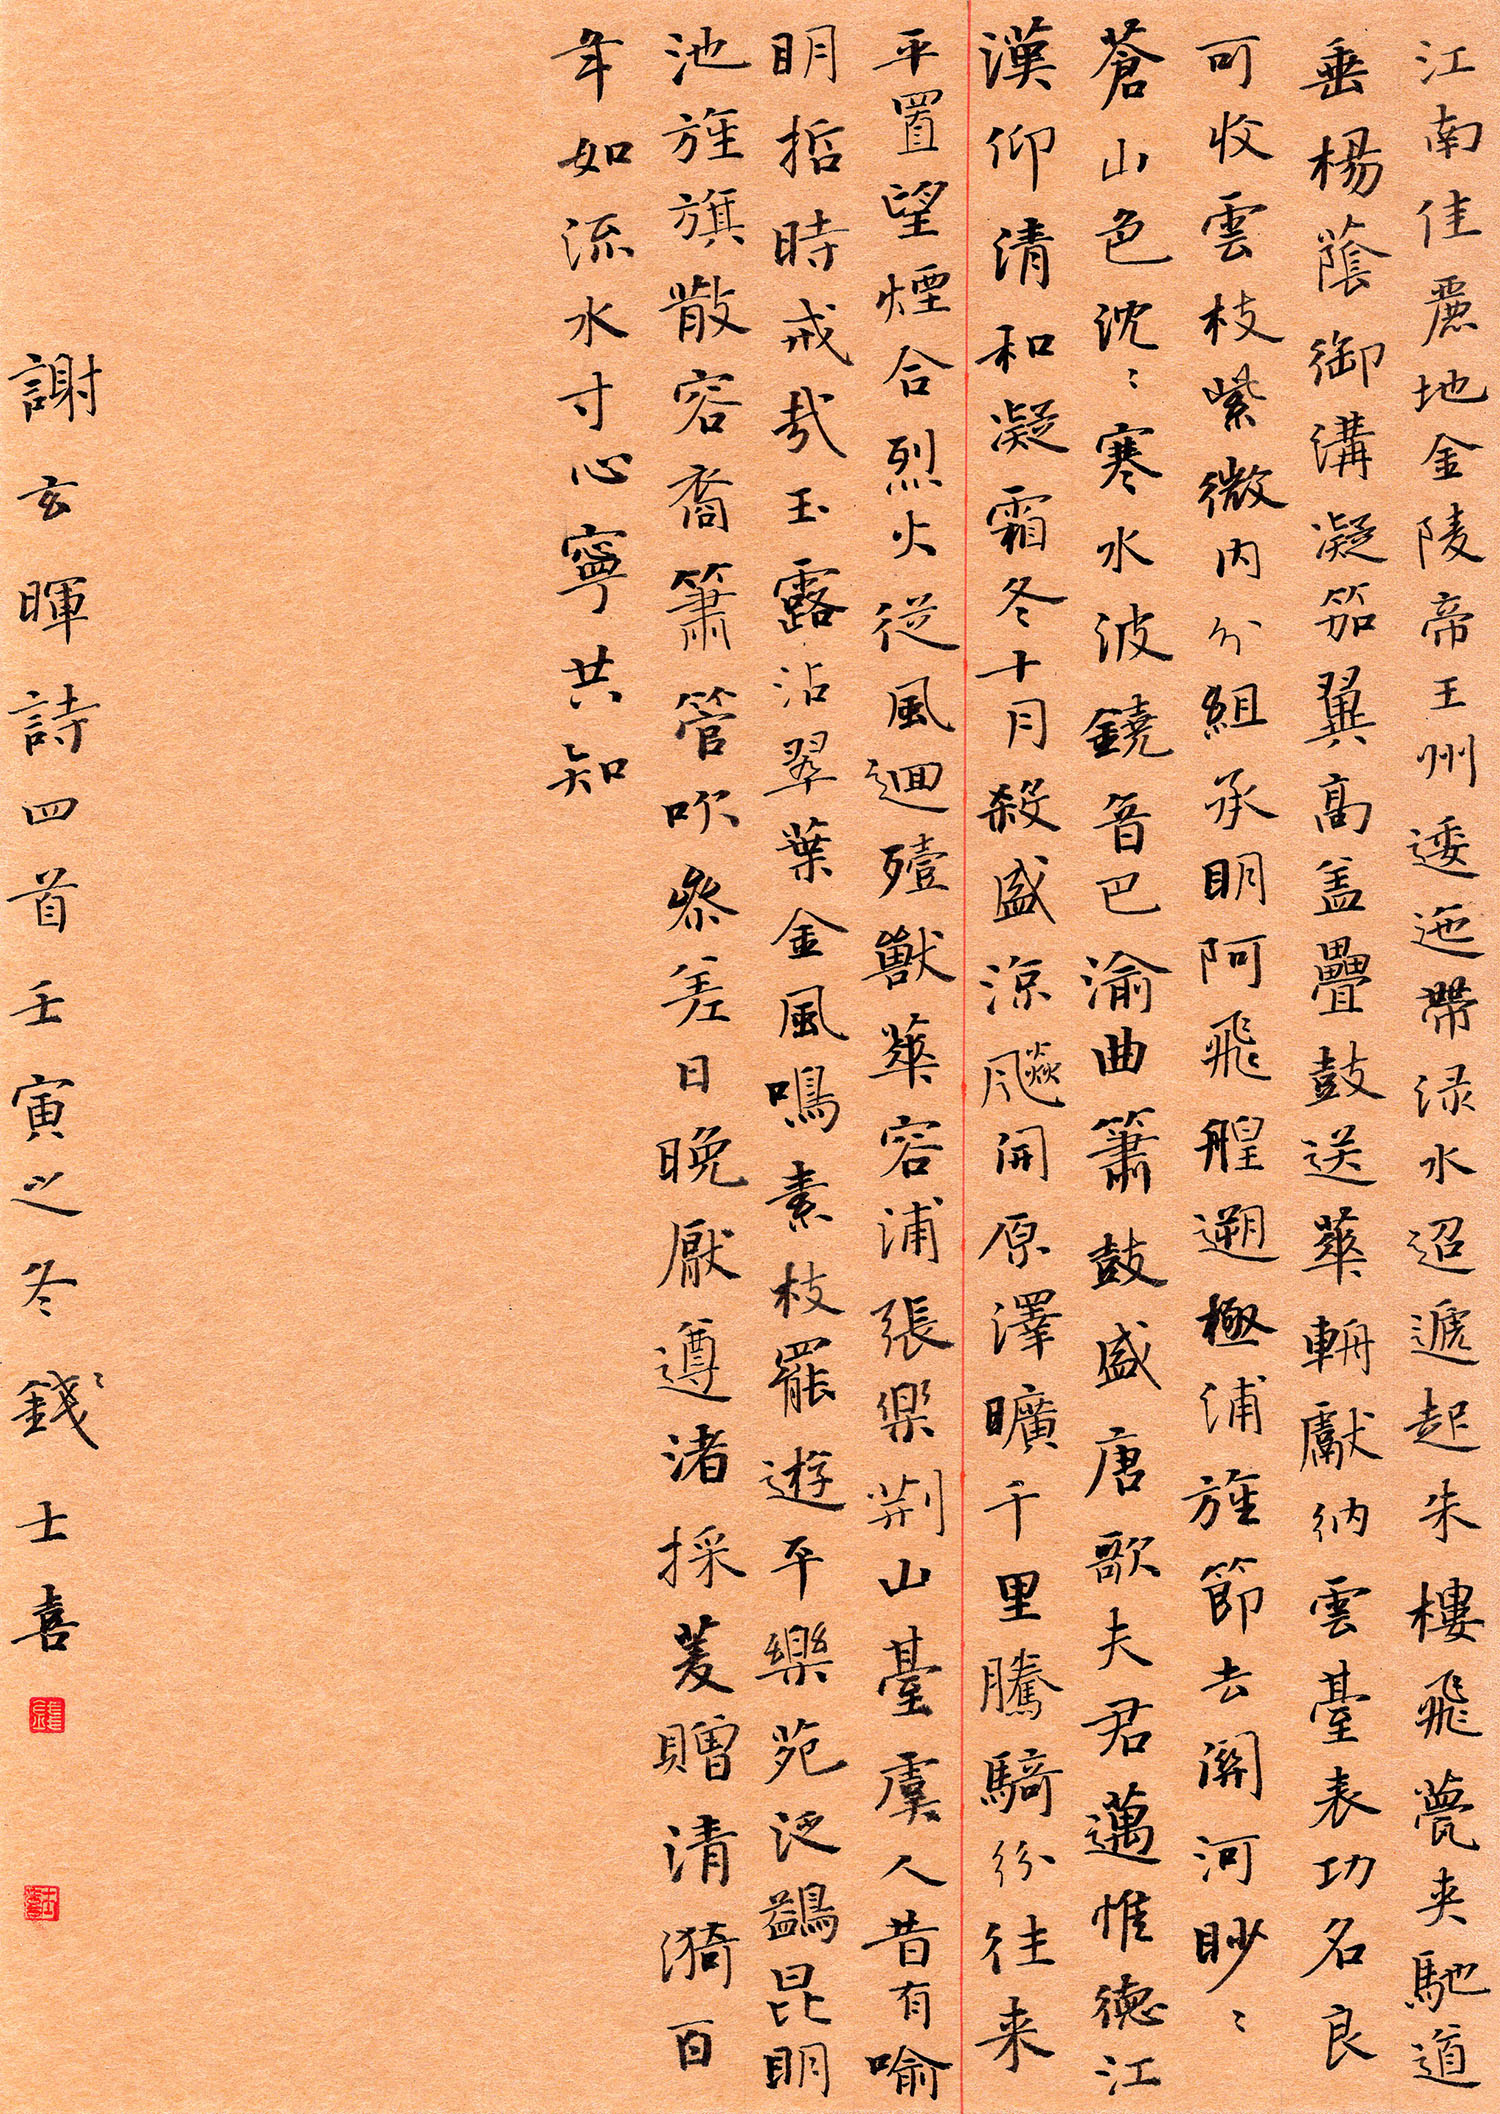 江南佳麗地金陵帝王州逶迤帶渌水迢遞起朱樓飛甍夹馳道
垂楊蔭御溝凝笳翼高盖疊鼓送華輈獻納雲臺表功名良
可收雲枝紫微内分組承明阿飛艎遡極浦旌節去關河眇〻
蒼山色沈〻寒水波鐃音巴渝曲簫鼓盛唐歌夫君邁惟德江
漢仰清和凝霜冬十月殺盛涼飊開原澤曠千里騰騎紛往来
平置望煙合烈火從風迴殪獸華容浦張樂荆山臺虞人昔有喻
明哲時戒哉玉露沾翠葉金風鳴素枝罷遊平樂苑泛鷁昆明
池旌旗散容裔簫管吹參差日晚厭遵渚採菱贈清漪百
年如流水寸心寧共知
謝玄暉詩四首壬寅之冬錢〻士喜